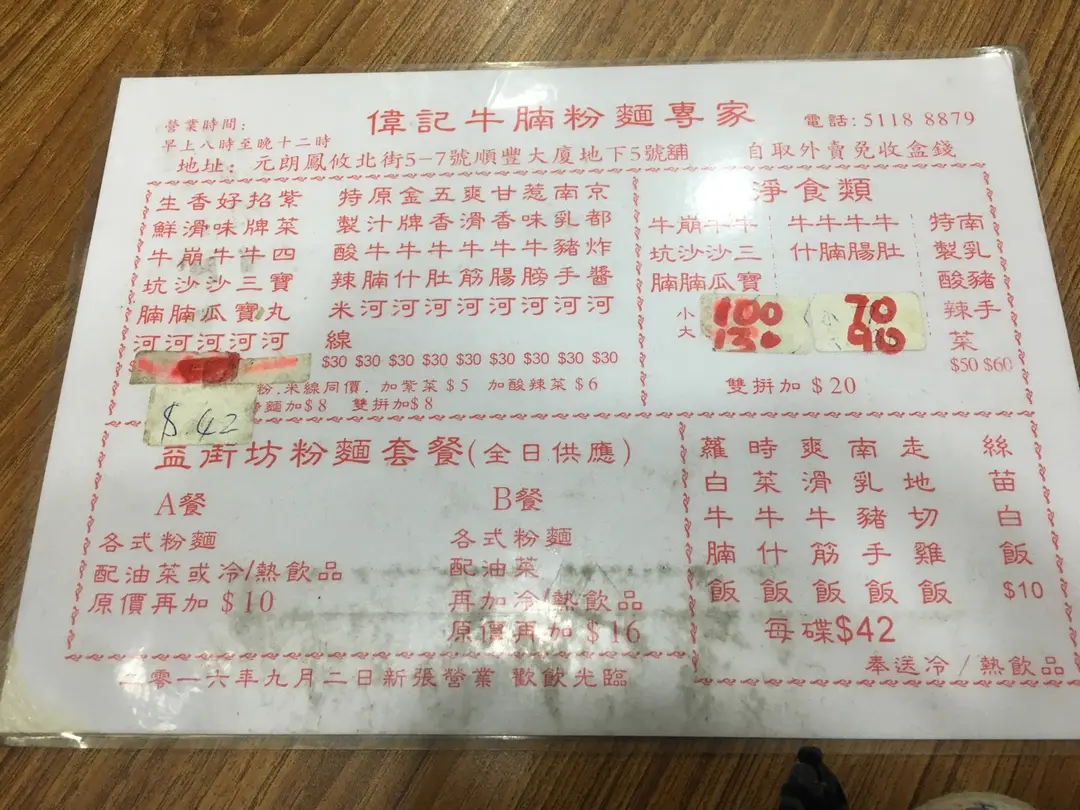 偉記牛腩粉麵專家
營業時間:
早上八時至晚十二時
電話: 5118 8879
地址: 元朗鳳攸北街5-7號順豐大廈地下5號舖
自取外賣免收盒錢
生鮮牛坑腩河
香滑崩沙腩河
好味牛沙瓜河
招牌牛三寶河
紫菜四寶丸河
$ 42
特製酸辣米線
原汁牛腩河
金牌牛什河
五香牛肚河
爽滑牛筋河
甘香牛腸河
惹味牛膀河
南乳豬手河
京都炸醬河
$30 $30 $30 $30 $30 $30 $30 $30 $30
粉.米線同價, 加紫菜$5 加酸辣菜$6
麵加$8 雙拼加$8
淨食類
牛坑腩
崩沙腩
牛沙瓜
牛三寶
牛什
牛腩
牛腸
牛肚
特製酸辣菜
南乳豬手
小 100 小 70
大 130 90
$50 $60
雙拼加$20
益街坊粉麵套餐(全日供應)
A餐
各式粉麵
配油菜或冷/熱飲品
原價再加$10
B餐
各式粉麵
配油菜
再加冷/熱飲品
原價再加$16
蘿白牛腩飯
時菜牛什飯
爽滑牛筋飯
南乳豬手飯
走地切雞飯
絲苗白飯
$10
每碟$42
奉送冷/熱飲品
二零一六年九月二日新張營業 歡飲光臨